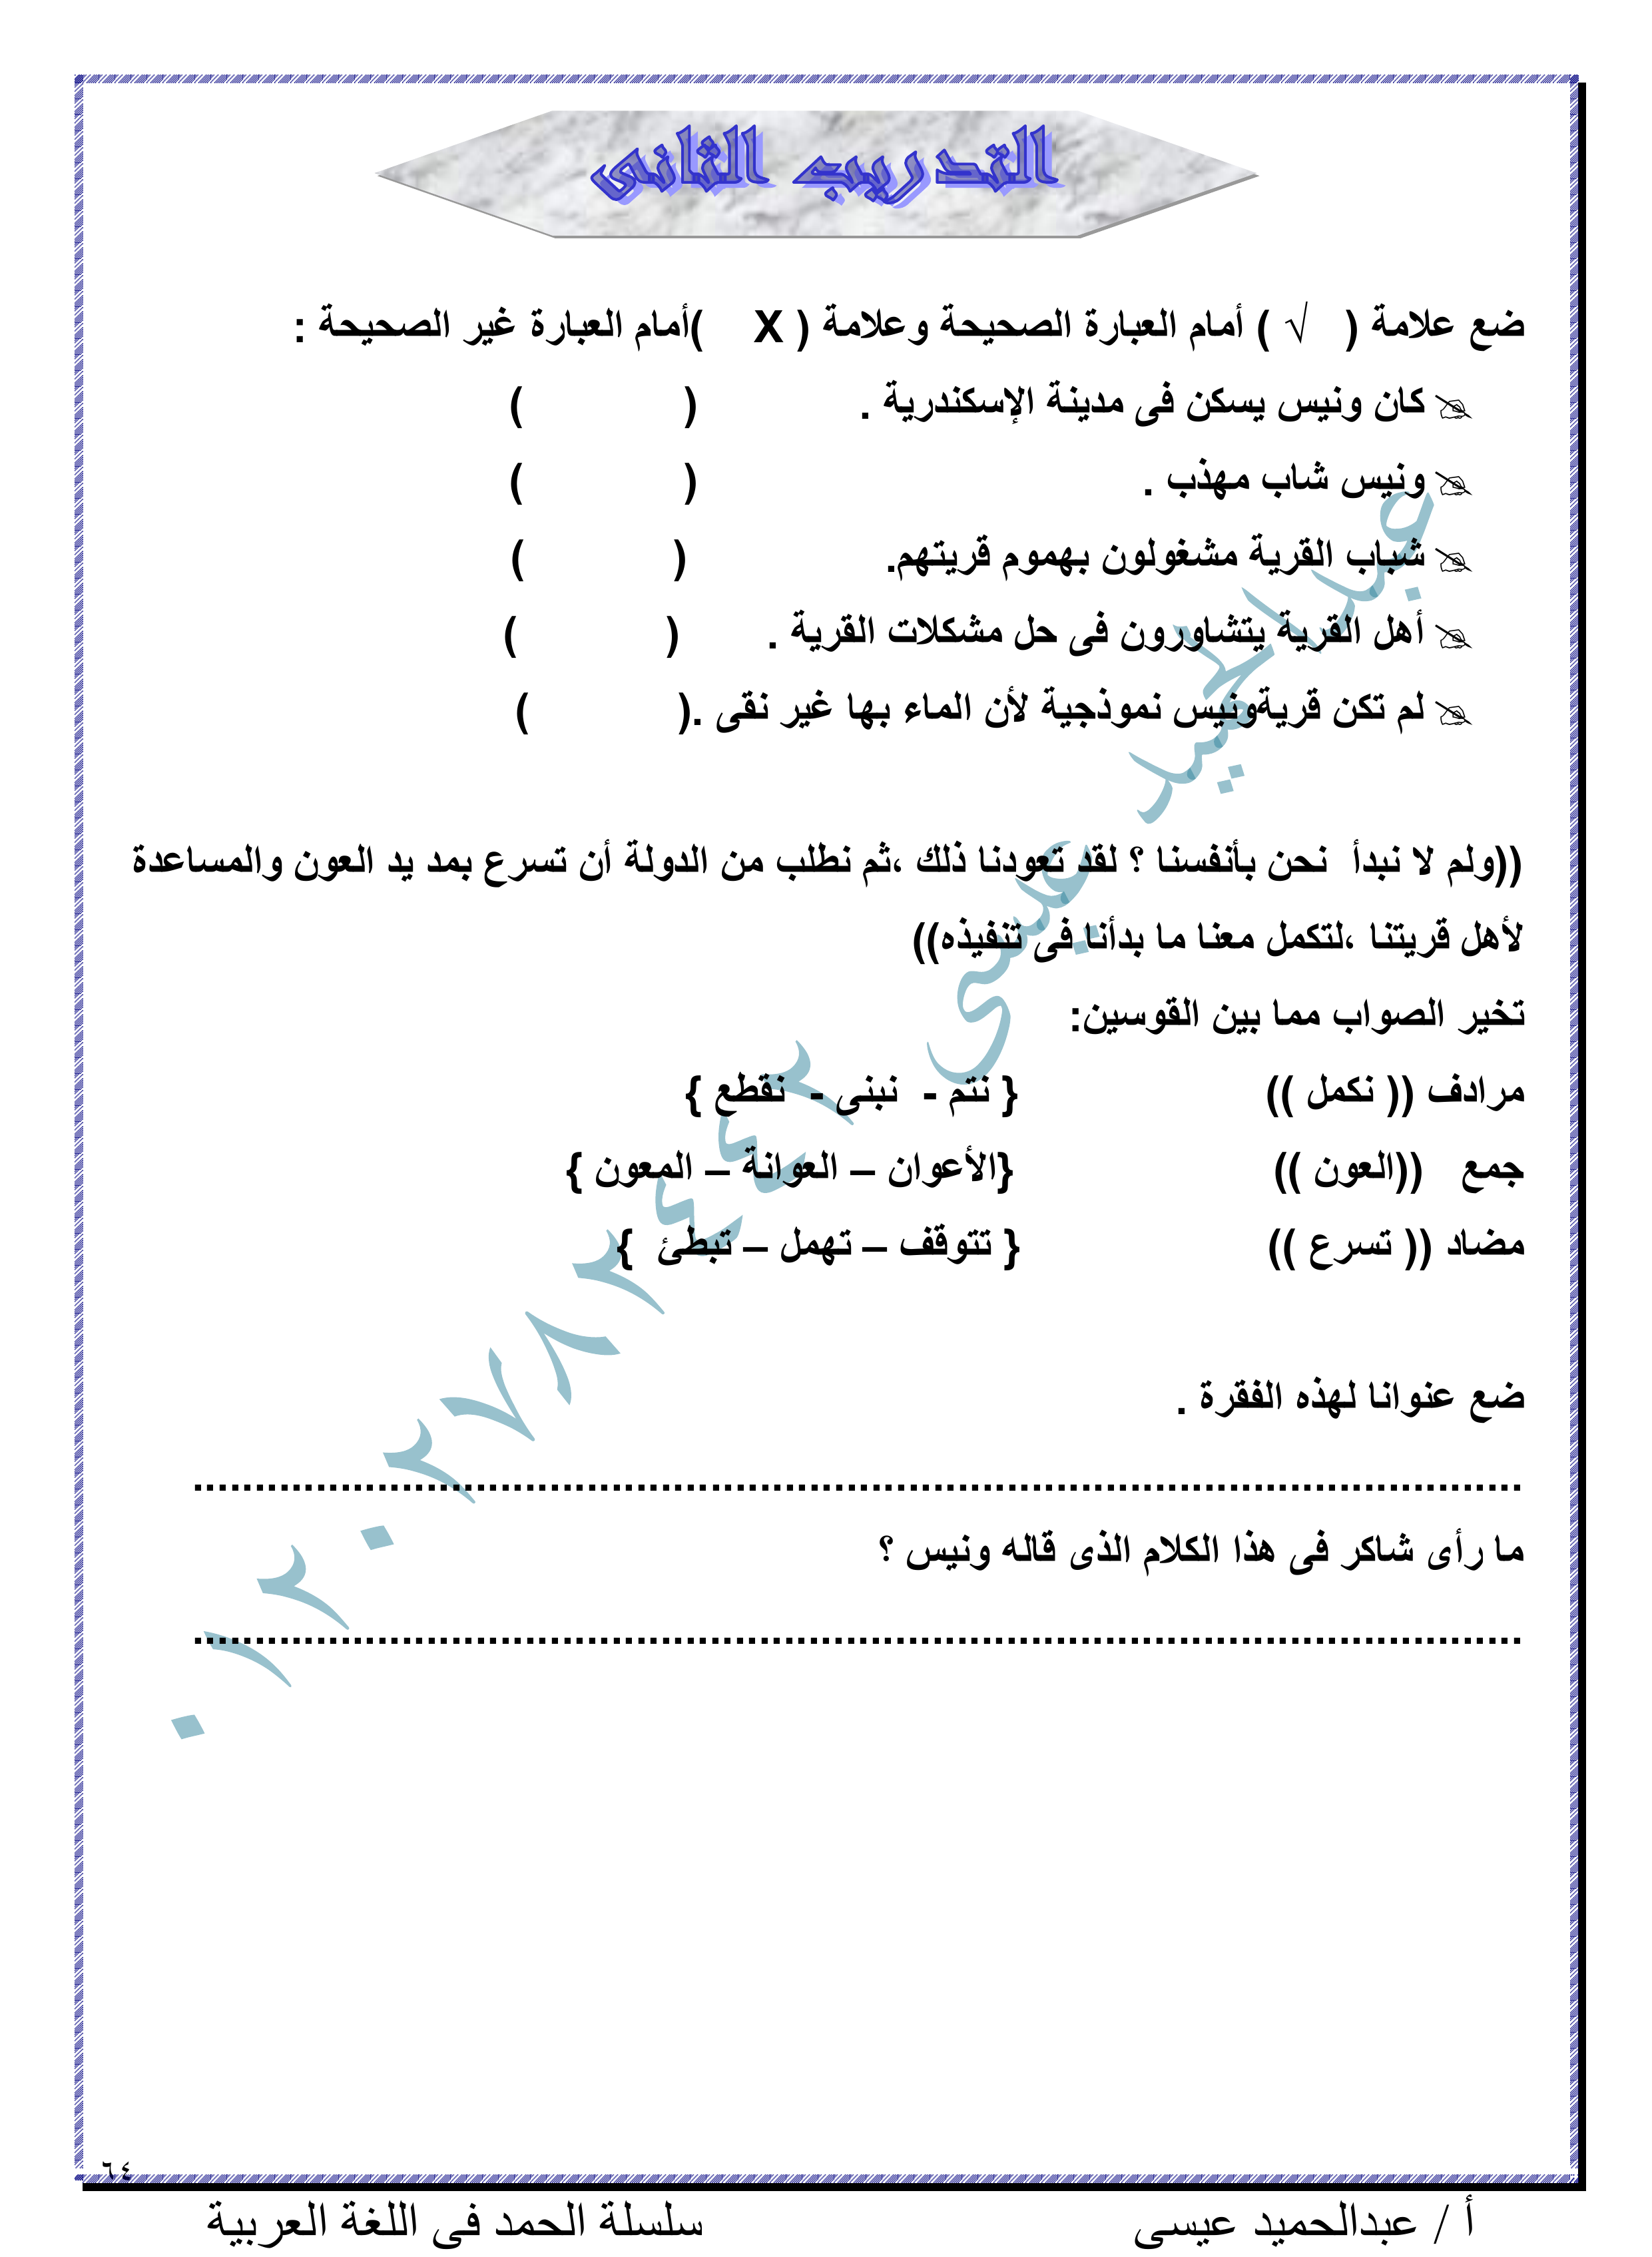 التدريب الثانى
ضع علامة ( √ ) أمام العبارة الصحيحة وعلامة ( X )أمام العبارة غير الصحيحة :
كان ونيس يسكن فى مدينة الإسكندرية . ( )
ونيس شاب مهذب . ( )
شباب القرية مشغولون بهموم قريتهم. ( )
أهل القرية يتشاورون فى حل مشكلات القرية . ( )
لم تكن قريةونيس نموذجية لأن الماء بها غير نقى .( )
((ولم لا نبدأ نحن بأنفسنا ؟ لقد تعودنا ذلك ،ثم نطلب من الدولة أن تسرع بمد يد العون والمساعدة
لأهل قريتنا ،لتكمل معنا ما بدأنا فى تنفيذه))
تخير الصواب مما بين القوسين:
مرادف (( نكمل )) { نتم - نبنى - نقطع }
جمع ((العون )) {الأعوان – العوانة – المعون }
مضاد (( تسرع )) { تتوقف – تهمل – تبطئ }
ضع عنوانا لهذه الفقرة .
................................................................................
ما رأى شاكر فى هذا الكلام الذى قاله ونيس ؟
................................................................................
عبدالحميد عيسى ٠١٢٠٢٧٨٢٤٤٢
٦٤
أ / عبدالحميد عيسى سلسلة الحمد فى اللغة العربية